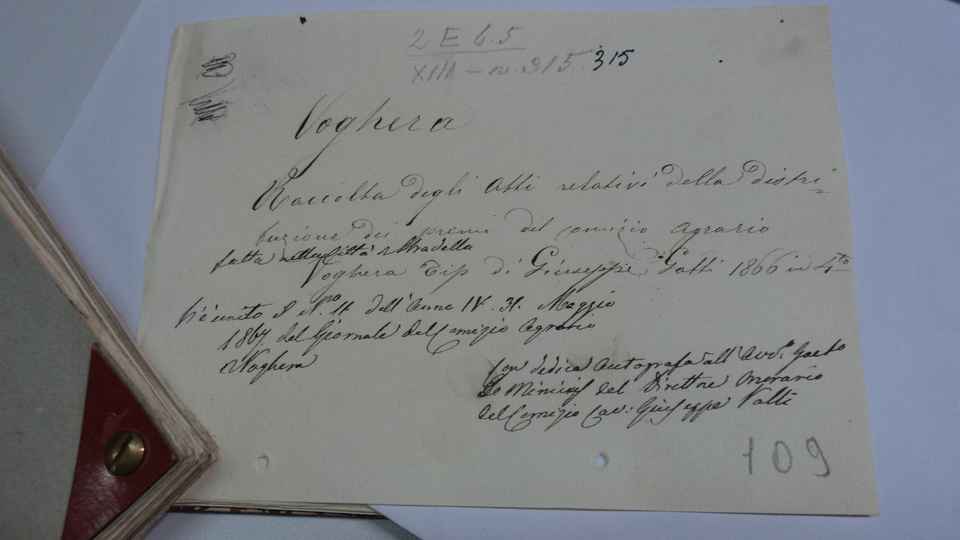 2 E 6.5
XIII - n. 315. 315
Voghera
Raccolta degli Atti relativi della distri=
buzione dei premi del comizio Agrario
fatta nella Città Stradella
Voghera Tip di Giuseppe Gatti 1866 in 4to
V'è unito il No. 11 dell'Anno IV. 31. Maggio
1867 del Giornale del Comizio Agrario
Voghera
con dedica autografa all'Avv. Gaeto
De Minicis del Direttore onorario
del Comizio Cav: Giuseppe Valli
109